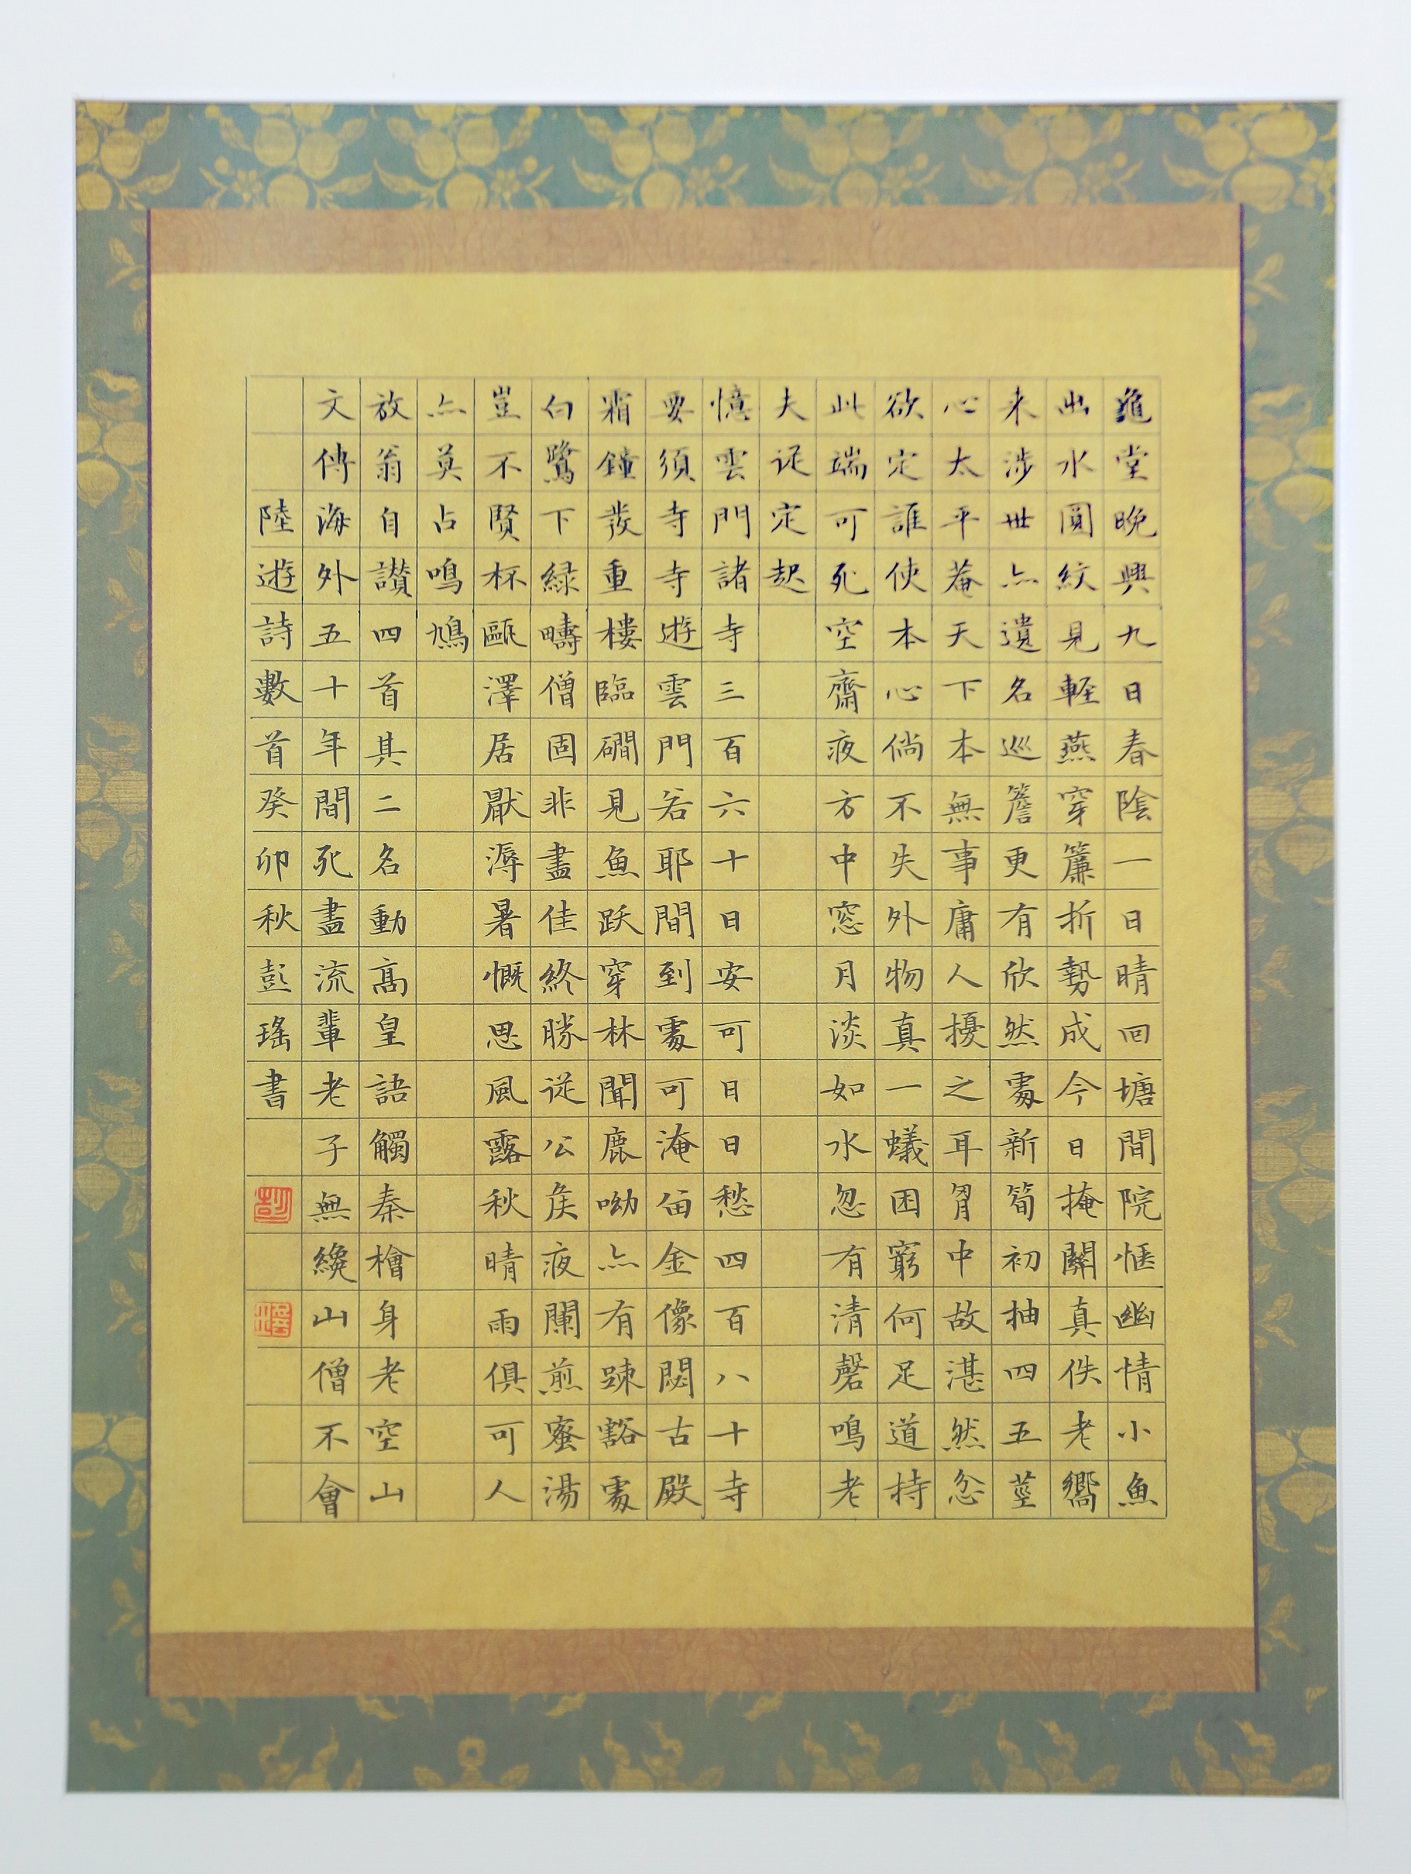 龜堂晚興九日春陰一日晴回塘間院愜幽情小魚
出水圓紋見輕燕穿簾折勢成今日掩關真佚老嚮
来涉世亦遺名巡簷更有欣然處新筍初抽四五莖
心太平菴天下本無事庸人擾之耳胷中故湛然忿
欲定誰使本心倘不失外物真一蟻困窮何足道持
此端可死空齋夜方中窓月淡如水忽有清磬鳴老
夫従定起
憶雲門諸寺三百六十日安可日日愁四百八十寺
要須寺寺遊雲門若耶間到處可淹留金像閟古殿
霜鐘發重樓臨磵見魚跃穿林聞鹿呦亦有踈豁處
白鷺下緑疇僧固非盡佳終勝従公矦夜闌煎蜜湯
豈不賢杯甌澤居厭溽暑慨思風露秋晴雨俱可人
亦莫占鳴鳩
放翁自讃四首其二名動高皇語觸秦檜身老空山
文傳海外五十年間死盡流輩老子無纔山僧不會
陸遊詩數首癸卯秋彭瑤書